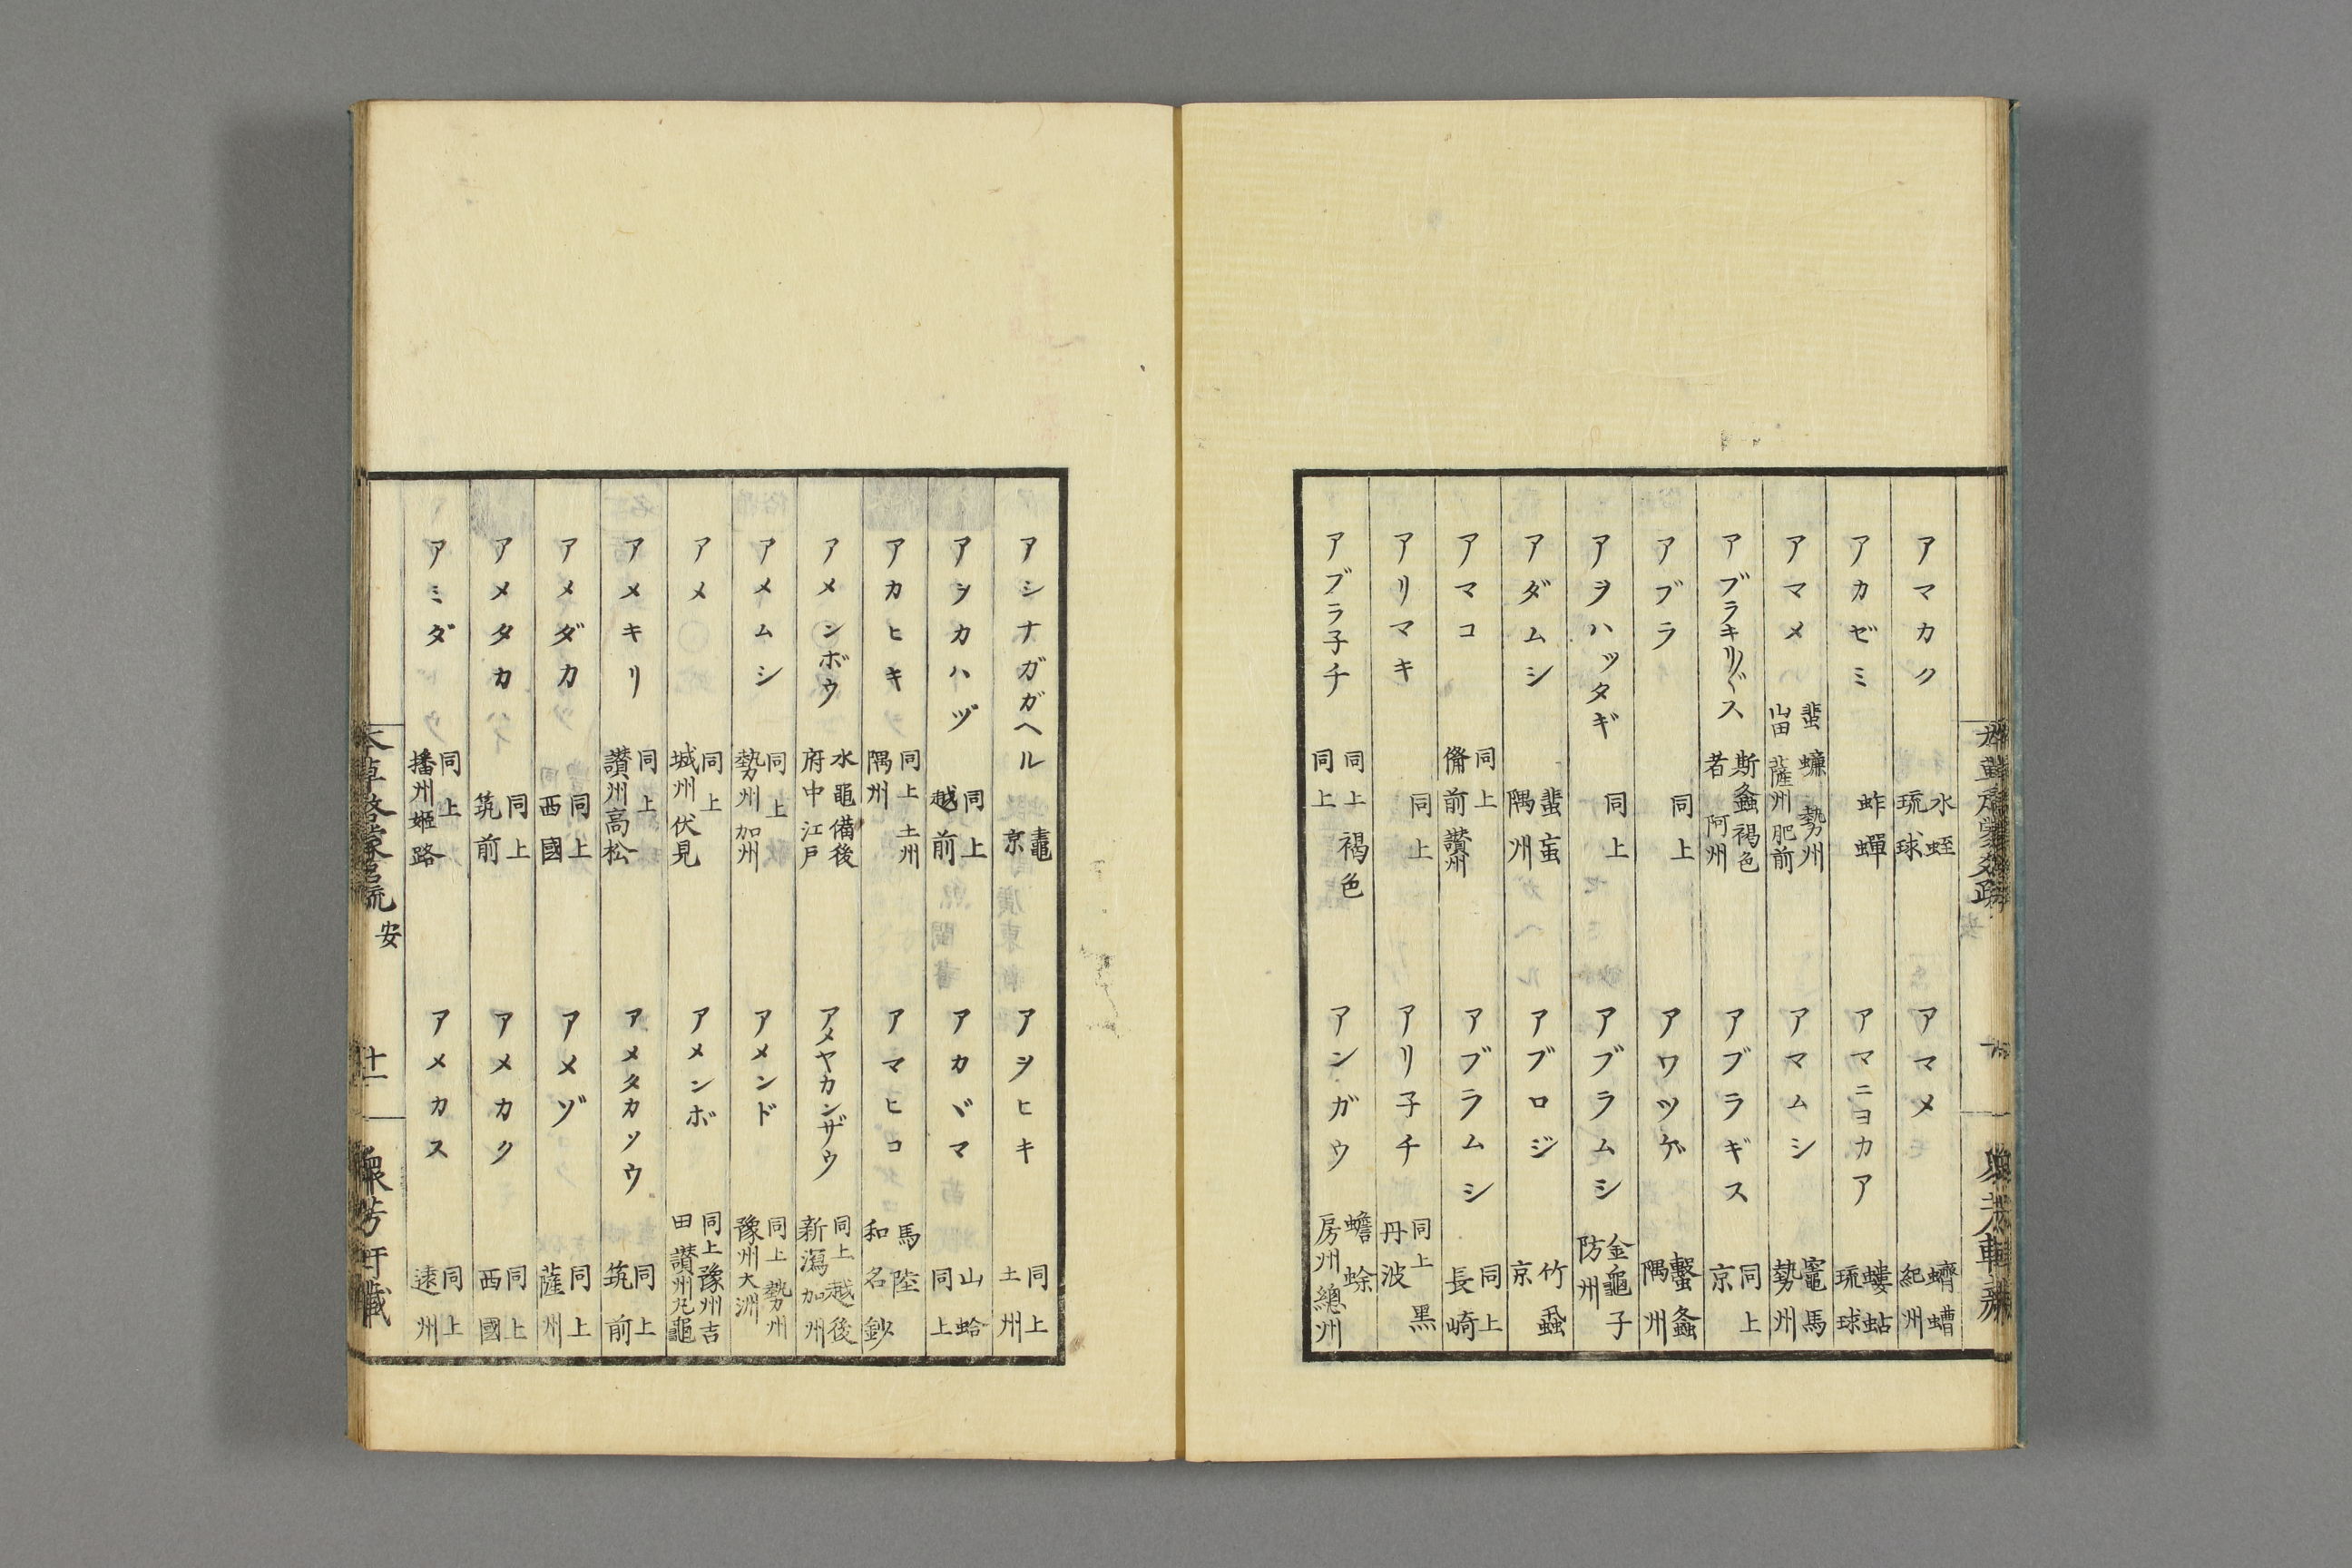 アマカク 水蛭 琉球
アマメ 蠐螬 紀州
アカゼミ 蚱蟬
アマニヨカア 螻蛄 琉球
アマメ 蜚蠊 勢州 山田 薩州 肥前
アマムシ 竈馬 勢州
アブラキリ〴〵ス 斯螽褐色者 阿州
アブラギス 同上 京
アブラ 同上
アワツケ 螽 隅州
アヲハッタギ 同上
アブラムシ 金龜子 防州
アダムシ 蜚蝱 隅州
アブロジ 竹蝨 京
アマコ 同上 備前 讃州
アブラムシ 同上 長崎
アリマキ 同上
アリ子チ 同上 黒 丹波
アブラ子チ 同上 褐色 同上
アンガウ 蟾蜍 房州 總州
アシナガガヘル 鼃 京
アヲヒキ 同上 土州
アヲカハヅ 同上 越前
アカヾマ 山蛤 同上
アカヒキ 同上 土州 隅州
アマヒコ 馬陸 和名鈔
アメンボウ 水黽 備後 府中 江戸
アメヤカンザウ 同上 越後 新瀉 加州
アメムシ 同上 勢州 加州
アメンド 同上 勢州 豫州大洲
アメ 同上 城州伏見
アメンボ 同上 豫州吉田 讃州丸龜
アメキリ 同上 讃州高松
アメタカソウ 同上 筑前
アメダカ 同上 西國
アメゾ 同上 薩州
アメタカ 同上 筑前
アメカク 同上 西國
アミダ 同上 播州姫路
アメカス 同上 遠州
本草啓蒙名疏 安 十一 衆芳軒藏